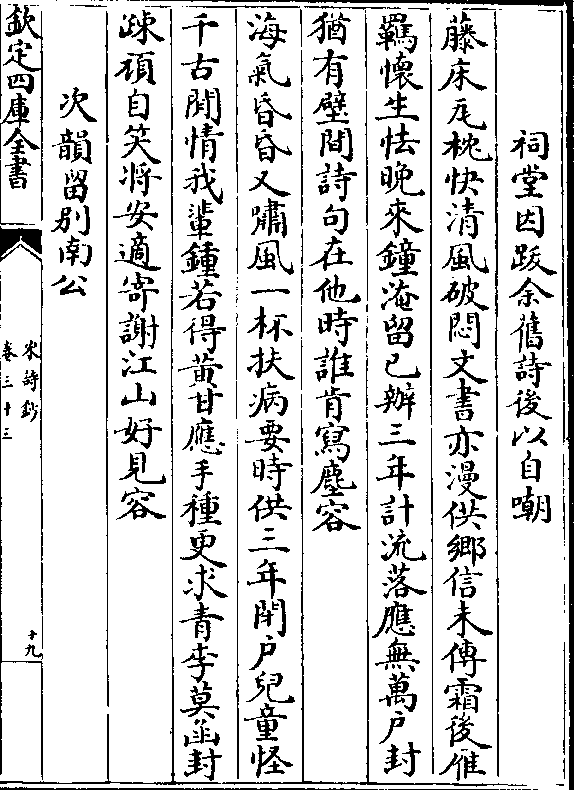 祠堂因跋余舊詩後以自嘲
藤床瓦枕快清風破悶文書亦漫供鄉信未傳霜後雁
羈懷生怯晚來鐘淹留已辦三年計流落應無萬戶封
猶有壁間詩句在他時誰肯寫塵容
海氣昏昏又嘯風一杯扶病要時供三年閉戶兒童怪
千古閒情我輩鍾若得黃甘應手種更求青李莫函封
疎頑自笑將安適寄謝江山好見容
次韻留別南公
欽定四庫全書
宋詩鈔
卷三十三
十九